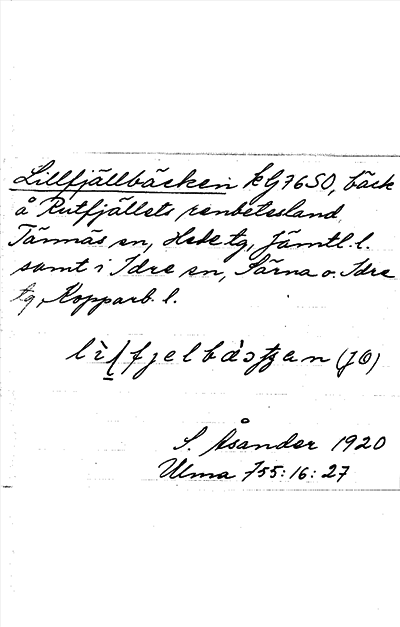 Lillfjällbäcken kG76SO, bäck
å Rutfjällets renbetesland,
Tännäs sn, Hede tg, Jämtl. l.
samt i Idre sn, Särna o. Idre
tg, Kopparb. l.
(JO)
S. Åsander 1920
Ulma 755:16:27